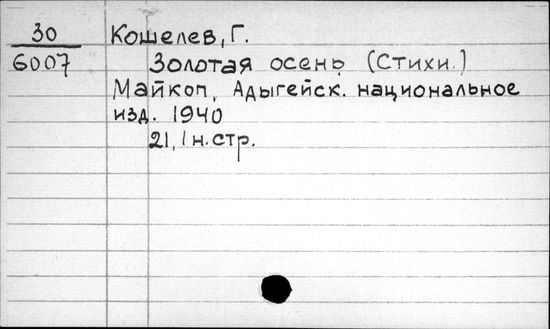 30 Кошелев, Г.
6007 Золотая осень (Стихи.)
Майкоп, Адыгейск. национальное
изд. 1940
21, 1 н. стр.